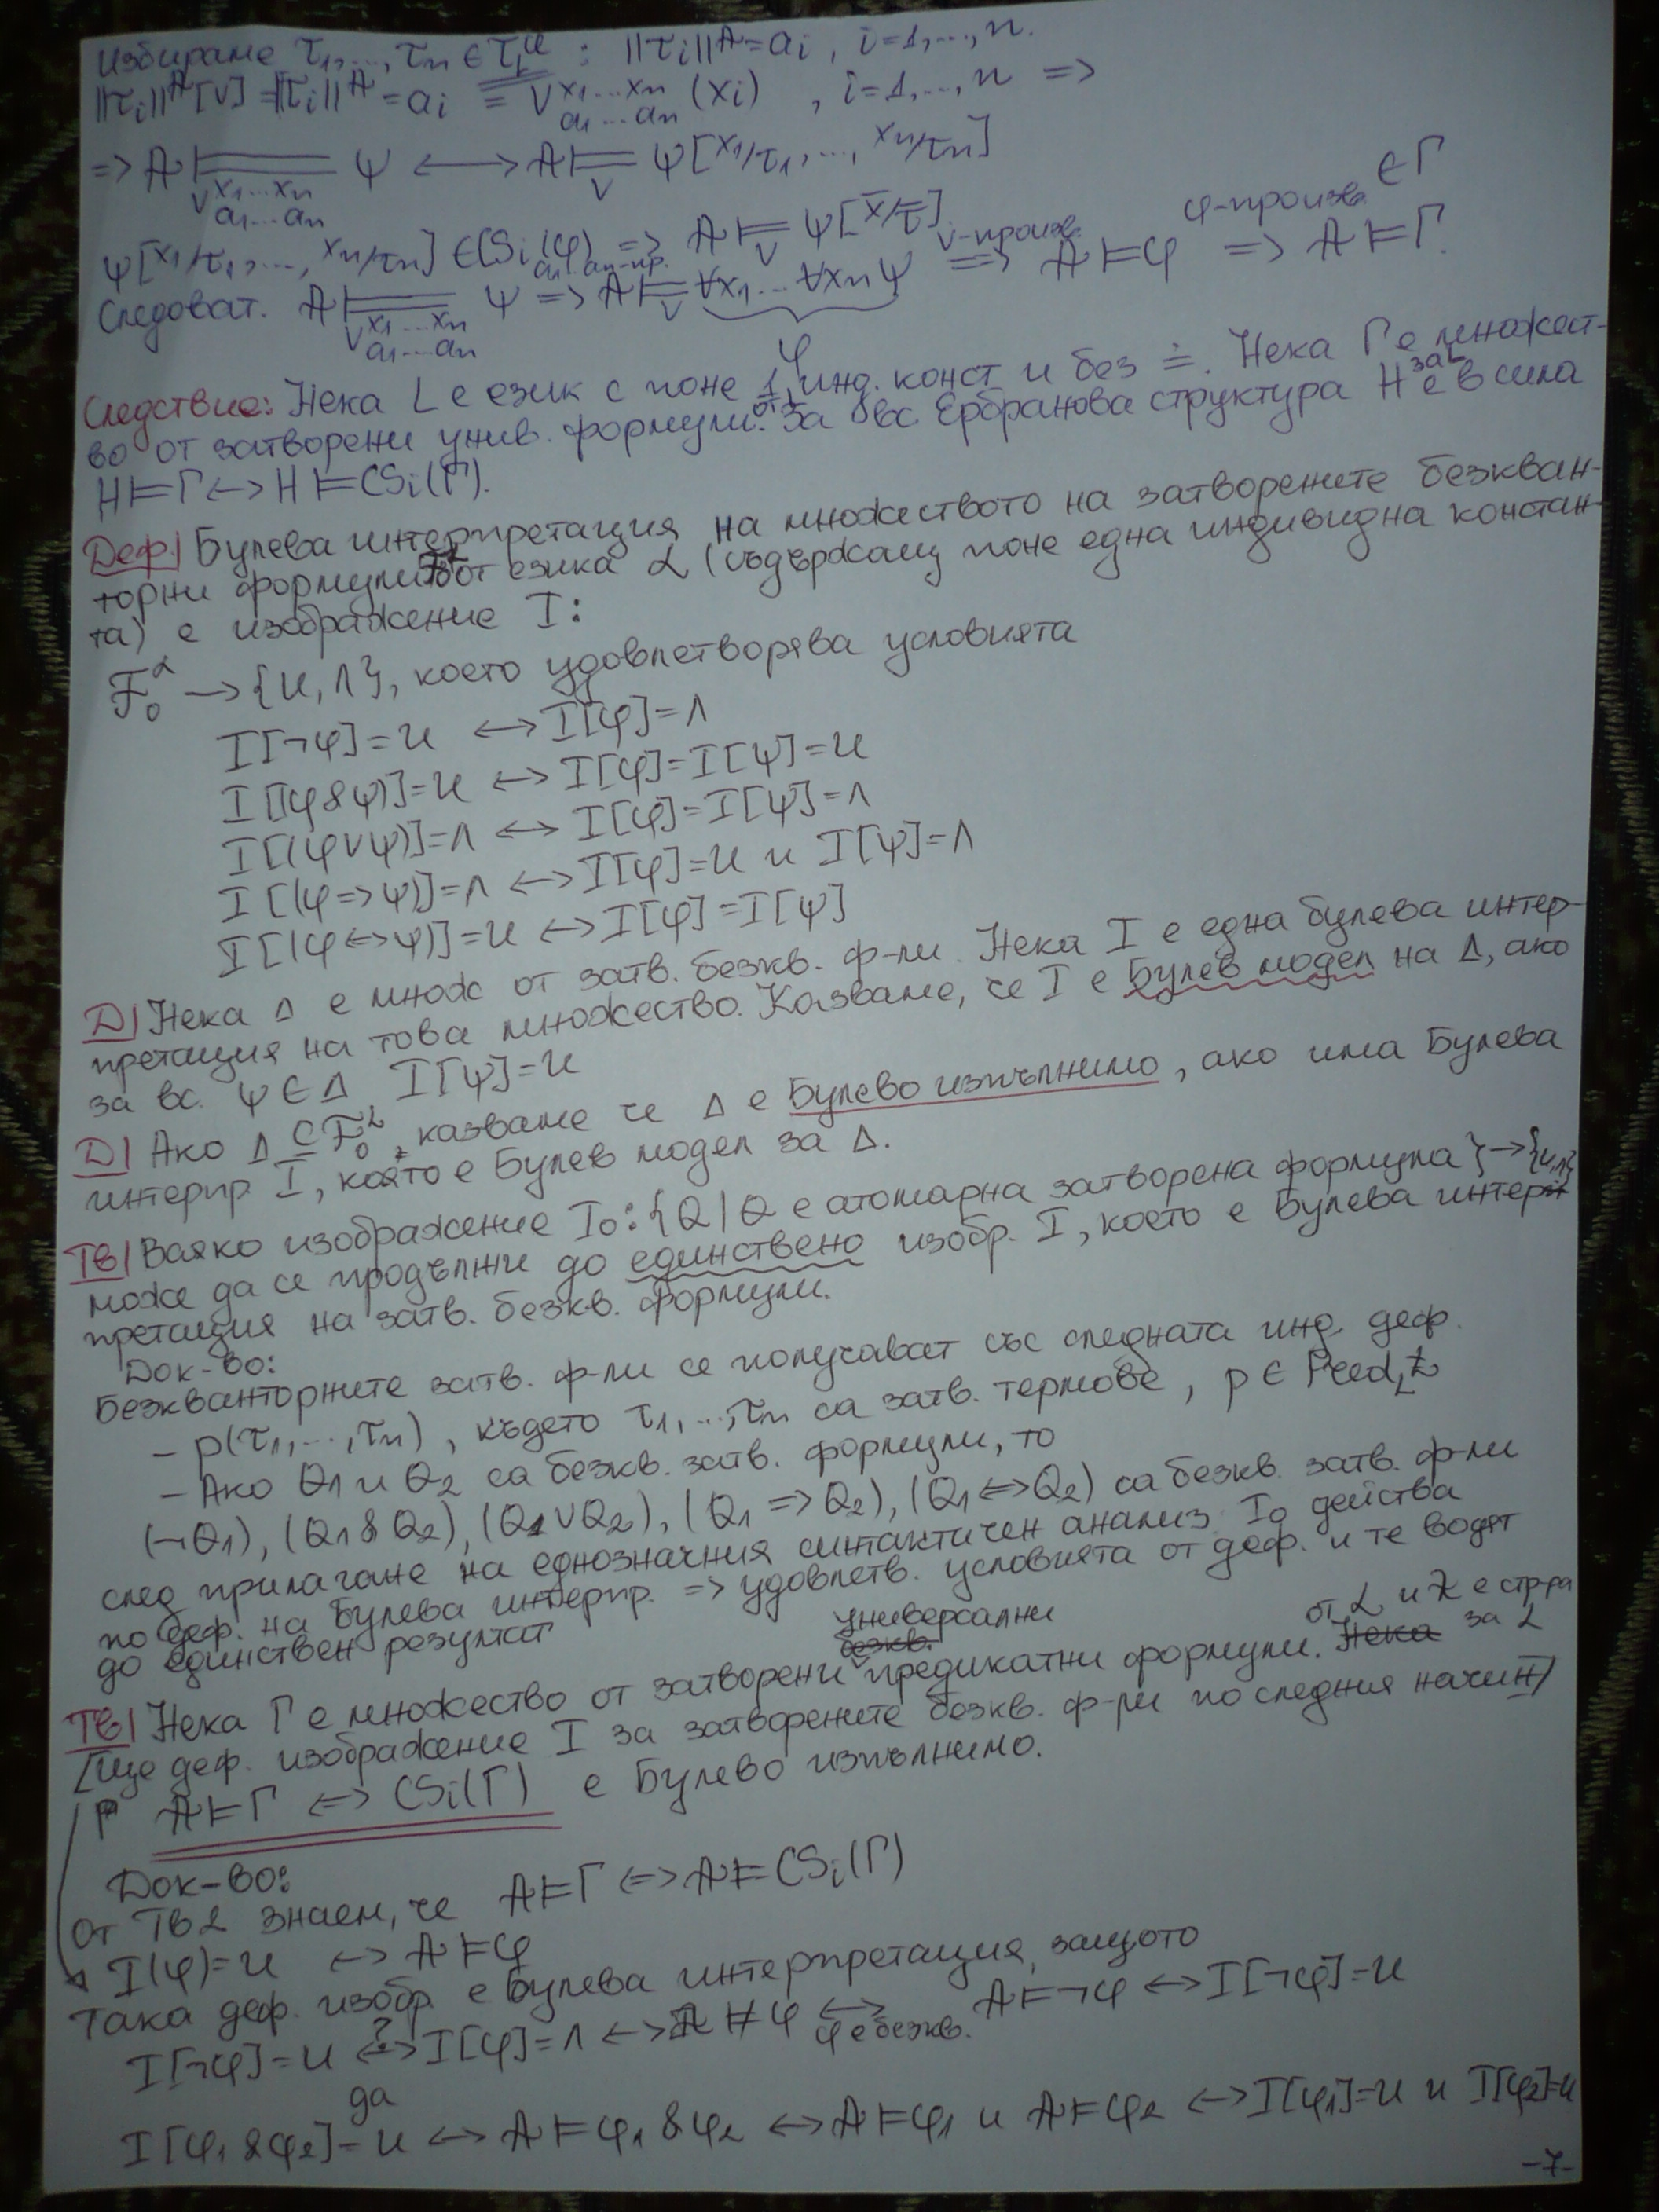 Избираме τ1,..., τn ∈ T_L^U : ||τi||^A = ai, i=1,...,n.
||τi||^A[v] = ||τi||^A = ai = v^{x1...xn}_{a1...an} (xi), i=1,...,n =>
=> A ⊨_{v^{x1...xn}_{a1...an}} ψ ⟷ A ⊨_v ψ[x1/τ1,..., xn/τn]
ψ[x1/τ1,..., xn/τn] ∈ CSi(φ) => A ⊨_v ψ[x̄/τ̄] v-произв. φ-произв. ∈Γ
Следоват. A ⊨_{v^{x1...xn}_{a1...an}} ψ a1...an-пр. => A ⊨_v ∀x1...∀xnψ => A ⊨ φ => A ⊨ Γ.
φ
Следствие: Нека L е език с поне 1 инд. конст и без ≐. Нека Γ е множест-
во от затворени унив. формули от L. За вс Ербранова структура H за L е в сила
H ⊨ Γ <-> H ⊨ CSi(Γ).
Деф| Булева интерпретация на множеството на затворените безкван-
торни формули от езика L (съдържащ поне една индивидна констан-
та) е изображение I:
F_0^L -> {и, л}, което удовлетворява условията
I[¬φ]=и <-> I[φ]=л
I[(φ&ψ)]=и <-> I[φ]=I[ψ]=и
I[(φ∨ψ)]=л <-> I[φ]=I[ψ]=л
I[(φ=>ψ)]=л <-> I[φ]=и и I[ψ]=л
I[(φ<=>ψ)]=и <-> I[φ]=I[ψ]
D| Нека Δ е множ от затв. безкв. ф-ли. Нека I е една булева интер-
претация на това множество. Казваме, че I е Булев модел на Δ, ако
за вс. ψ ∈ Δ I[ψ]=и
D| Ако Δ ⊆ F_0^L, казваме че Δ е Булево изпълнимо, ако има Булева
интерпр. I, която е Булев модел за Δ.
Тв| Всяко изображение I0: {Q | Q е атомарна затворена формула} -> {и,л}
може да се продължи до единствено изобр. I, което е Булева интер-
претация на затв. безкв. формули.
Док-во:
Безкванторните затв. ф-ли се получават със следната инд. деф.
- p(τ1,...,τn), където τ1,...,τn са затв. термове, p ∈ Pred_L
- Ако Q1 и Q2 са безкв. затв. формули, то
(¬Q1), (Q1&Q2), (Q1∨Q2), (Q1=>Q2), (Q1<=>Q2) са безкв. затв. ф-ли
след прилагане на еднозначния синтактичен анализ. I0 действа
по деф. на Булева интерпр. => удовлетв. условията от деф. и те водят
до единствен резултат
Тв| Нека Γ е множество от затворени универсални предикатни формули от L и A е стр-ра за L
[Ще деф. изображение I за затворените безкв. ф-ли по следния начин]
A ⊨ Γ <-> CSi(Γ) е Булево изпълнимо.
Док-во:
От Тв2 знаем, че A ⊨ Γ <-> A ⊨ CSi(Γ)
I(φ)=и <-> A ⊨ φ
Така деф. изобр. е Булева интерпретация, защото
I[¬φ]=и <-?-> I[φ]=л <-> A ⊭ φ <-> φ е безкв. A ⊨ ¬φ <-> I[¬φ]=и
да
I[φ1&φ2]=и <-> A ⊨ φ1&φ2 <-> A ⊨ φ1 и A ⊨ φ2 <-> I[φ1]=и и I[φ2]=и
-7-